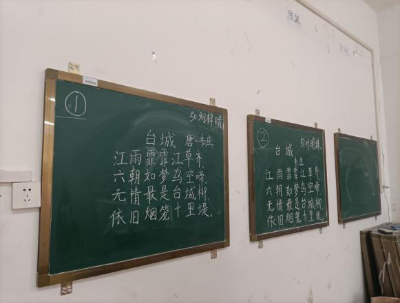 ①
台城 唐·韦庄
江雨霏霏江草齐，
六朝如梦鸟空啼。
无情最是台城柳，
依旧烟笼十里堤。
②
台城
韦庄
江雨霏霏江草齐
六朝如梦鸟空啼
无情最是台城柳
依旧烟笼十里堤